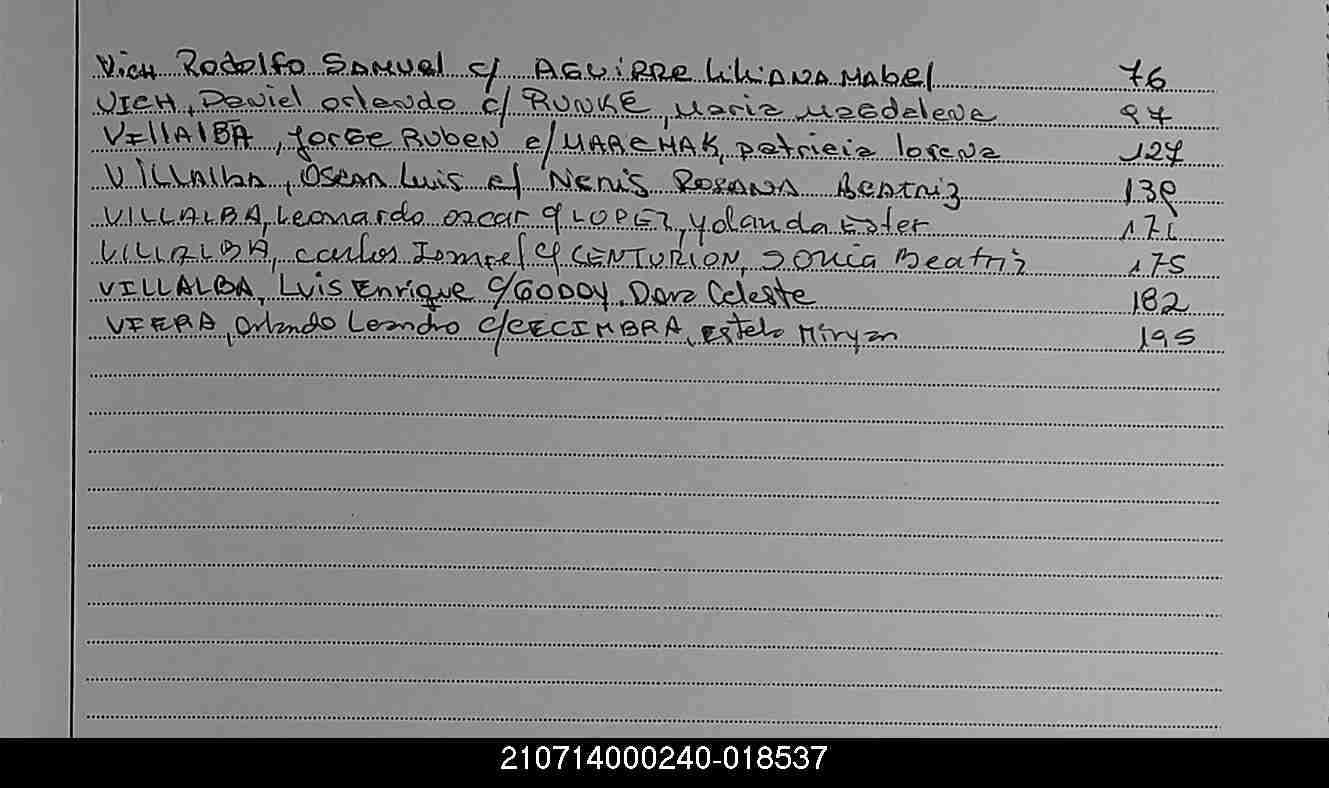 Vich Rodolfo Samuel c/ AGUIRRE Liliana Mabel 76
VICH, Daniel Orlando c/ RUNKE, Maria Magdalena 97
VillAlBA, Jorge Ruben c/ MARCHAK, patricia lorena 127
VillAlba, Oscar Luis c/ Neris Rosana Beatriz 139
VILLALBA, Leonardo oscar c/ LOPEZ, Yolanda Ester 171
VILLALBA, carlos Ismael c/ CENTURION, Sonia Beatriz 175
VILLALBA, Luis Enrique c/ GODOY, Dora Celeste 182
VIERA, Orlando Leandro c/ CECIMBRA, Estela Miryan 195
210714000240-018537